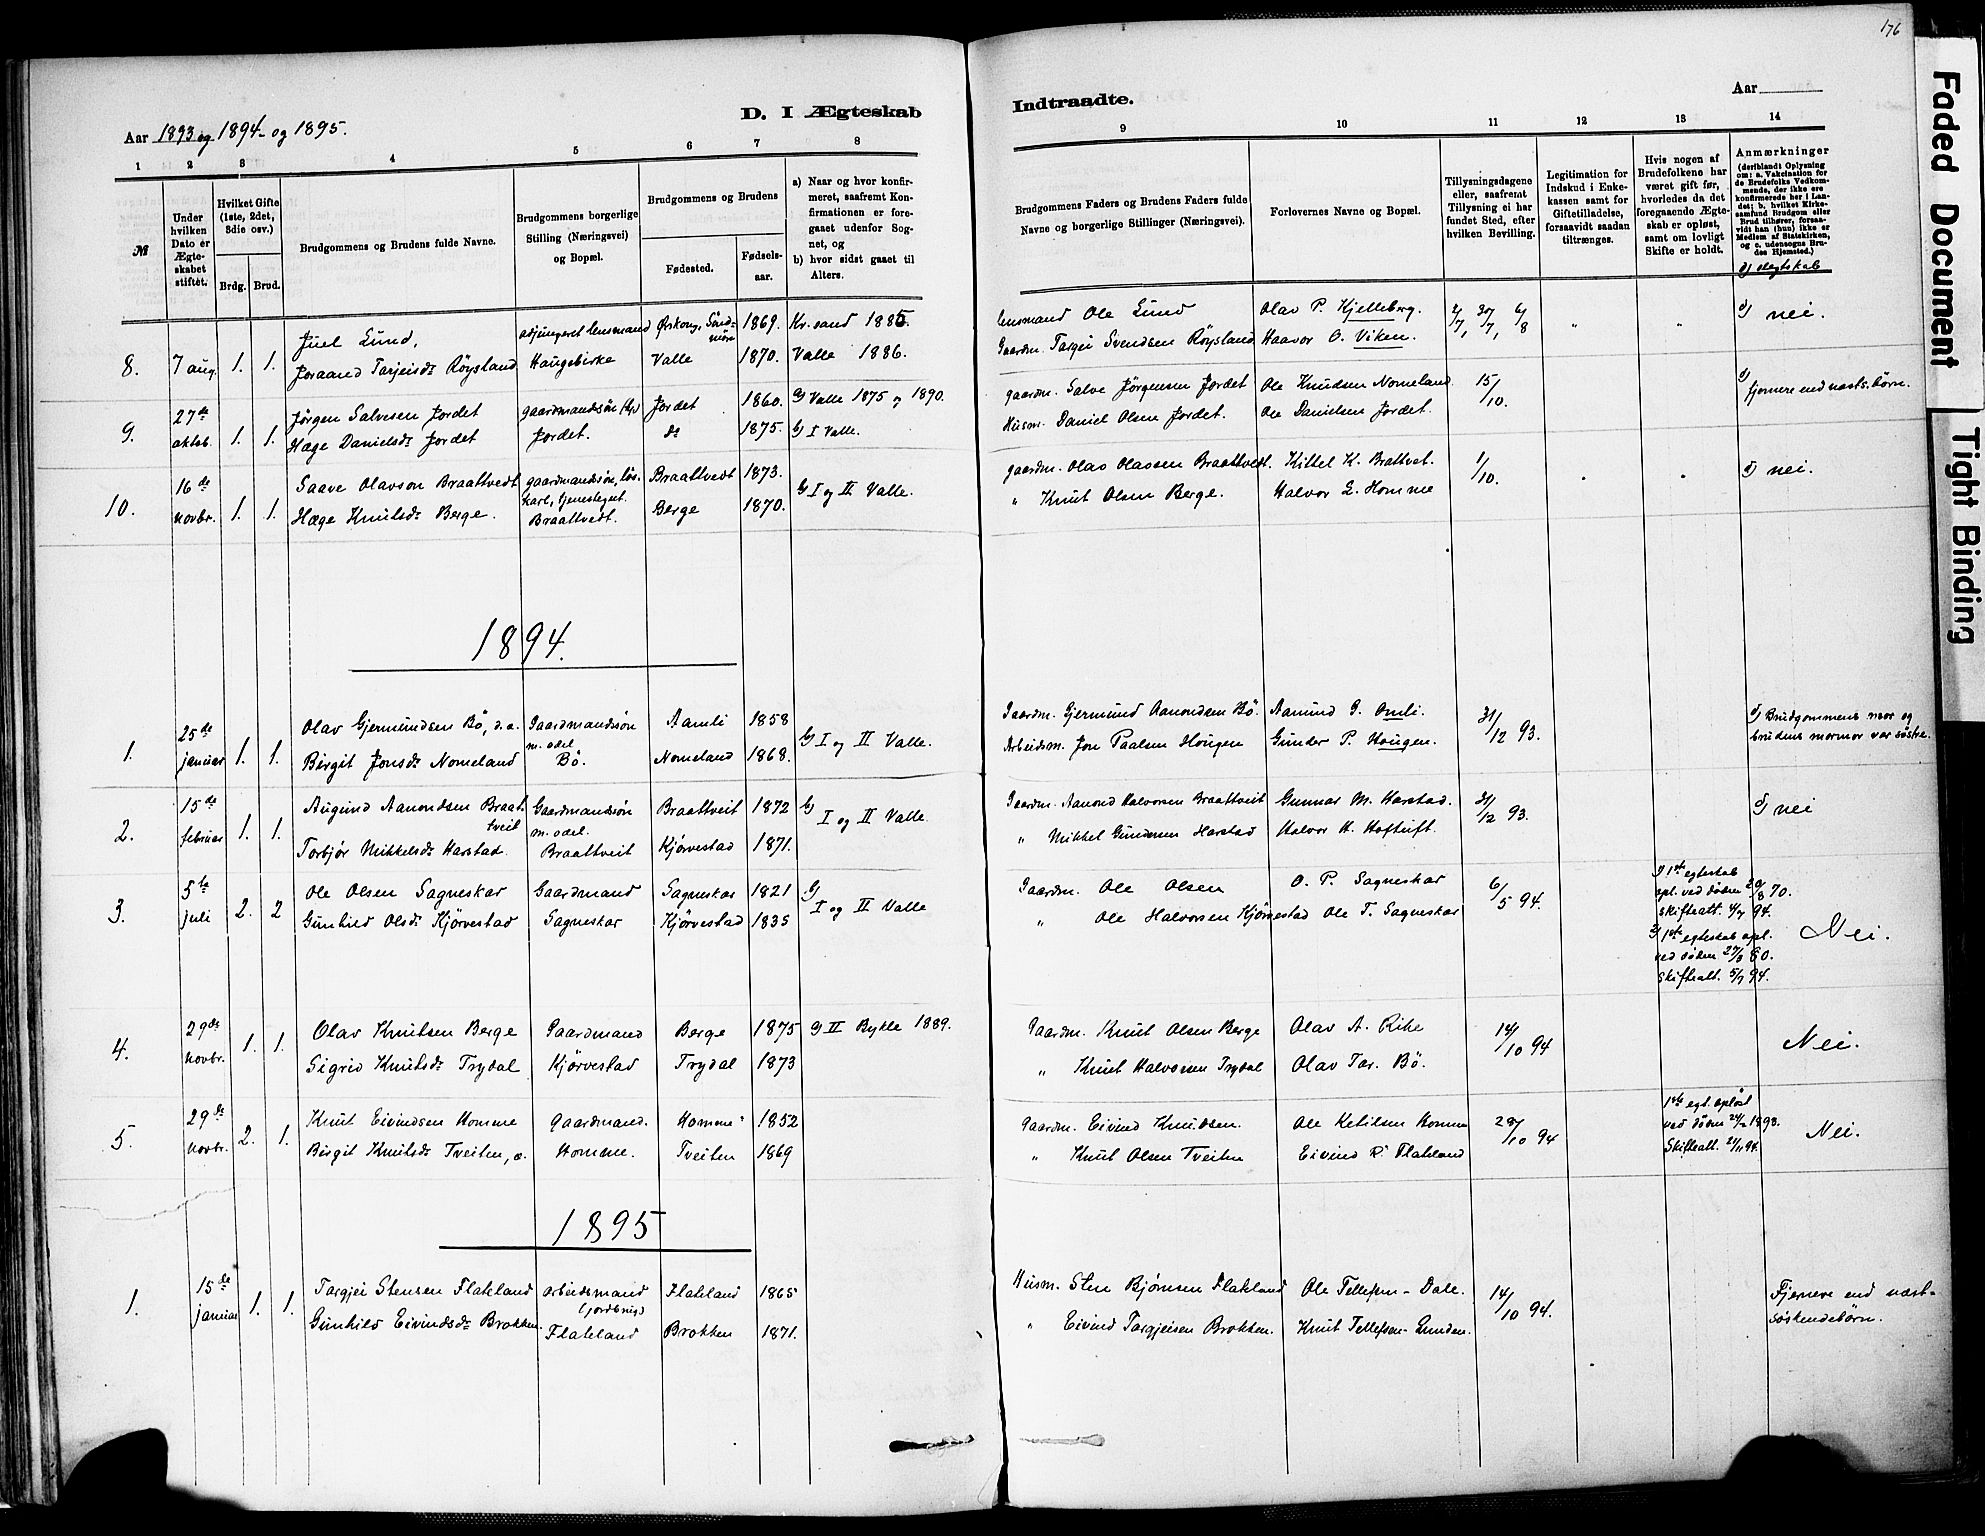 176
Faded Document
Tight Binding
D. I Ægteskab
Indtraadte.
Aar 1893 og 1894 og 1895.
Aar
1 2 3 4 5 6 7 8
9 10 11 12 13 14
№
Under hvilken Dato er Ægteskabet stiftet.
Hvilket Gifte (1ste, 2det, 3die osv.)
Brdg. Brud.
Brudgommens og Brudens fulde Navne.
Brudgommens borgerlige Stilling (Næringsvei) og Bopæl.
Brudgommens og Brudens
Fødested. Fødselsaar.
a) Naar og hvor konfirmeret, saafremt Konfirmationen er foregaaet udenfor Sognet, og
b) hvor sidst gaaet til Alters.
Brudgommens Faders og Brudens Faders fulde Navne og borgerlige Stillinger (Næringsvei).
Forlovernes Navne og Bopæl.
Tillysningsdagene eller, saafremt Tillysning ei har fundet Sted, efter hvilken Bevilling.
Legitimation for Indskud i Enkekassen samt for Giftetilladelse, forsaavidt saadan tiltrænges.
Hvis nogen af Brudefolkene har været gift før, hvorledes da det foregaaende Ægteskab er opløst, samt om lovligt Skifte er holdt.
Anmærkninger (deriblandt Oplysning om: a. Vakcination for de Brudefolks Vedkommende, der ikke ere konfirmerede her i Landet; b. hvilket Kirkesamfund Brudgom eller Brud tilhører, forsaavidt han (hun) ikke er Medlem af Statskirken, og c. udensogns Brudes Hjemsted.)
d) slegtskab
8. 7 aug. 1. 1. Juel Lund, adjungeret lensmand Ørskoug, Söndmöre 1869. Kr.sand 1885. lensmand Ole Lund Olav P. Kjelleberg. 2/7, 30/7, 6/8 " " d) nei.
Joraand Tarjeisdr Röysland Haugebirke Valle 1870. Valle 1886. Gaardm. Targei Svendsen Röysland Haavor O. Viken.
9. 27de oktob. 1. 1. Jörgen Salvesen Jordet gaardmandsön Jordet 1860. G Valle 1875 1890. gaardm. Salve Jörgensen Jordet Ole Knudsen Nomeland 15/10. d) fjernere end næsts.börn.
Hæge Danielsdr Jordet Jordet. do 1875. G I Valle. Husm. Daniel Olsen Jordet. Ole Danielsen Jordet.
10. 16de novbr. 1. 1. Saave Olavson Braattvedt gaardmandsön, løskarl, Braattvedt 1873. G I og II Valle. gaardm. Olav Olavsen Braattvedt. Kittel K. Brattvet. 1/10. d) nei.
Hæge Knutsdr Berge. Braattvedt. Berge 1870. " Knut Olsen Berge. Halvor L. Homme
1894.
1. 25de januar 1. 1. Olav Gjermundsen Bö, d.a. Gaardmandssön m. odel Aamli 1858 G I og II Valle. Gaardm. Gjermund Aanondsen Bö. Aamund G. Omli. 31/12 93. d) Brudgommens mor og
Birgit Jonsdr Nomeland Bö. Nomeland 1868. Arbeidsm. Jon Paalsen Hougen Gunder P. Hougen. brudens mormor var söstre.
2. 15de februar 1. 1. Augund Aanondsen Braattveit Gaardmandssön m. odel. Braattveit 1872 G I og II Valle Gaardm. Aanond Halvorsen Braattveit Gunnar M. Harstad. 31/12 93. d) nei
Torbjör Mikkelsdr Harstad. Braattveit Kjörvestad 1871. " Mikkel Gundersen Harstad Halvor H. Hoftuft.
3. 5te juli 2. 2 Ole Olsen Sagneskar Gaardmand Sagneskar 1821 G I og II Valle Gaardm. Ole Olsen O. P. Sagneskar 6/5 94. 1) 1ste egteskab opl. ved döden 20/8 70. skifteatt. 4/7 94.
Gunhild Olsdr Kjörvestad Sagneskar Kjörvestad 1835 " Ole Halvorsen Kjörvestad Ole T. Sagneskar 2) 1ste egteskab opl. ved döden 27/3 60. skifteatt. 5/7 94. Nei.
4. 29de novbr. 1. 1. Olav Knutsen Berge Gaardmand Berge 1875 G II Bykle 1889. Gaardm. Knut Olsen Berge Olav A. Rike 14/10 94 Nei.
Sigrid Knutsdr Trydal Kjörvestad Trydal 1873 " Knut Halvorsen Trydal Olav Tar. Bö.
5. 29de novbr. 2. 1. Knut Eivindsen Homme Gaardmand. Homme 1852 Gaardm. Eivind Knudsen. Ole Ketilsen Homme 28/10 94 1ste egt. oplöst ved döden 1893. Skifteatt. 21/11 94. Nei.
Birgit Knutsdr Tveiten, Homme. Tveiten 1869 " Knut Olsen Tveiten Eivind R. Flateland
1895
1. 15de januar 1. 1. Targjei Stensen Flateland arbeidsmand (jordbrug) Flateland 1865 Husm. Sten Björnsen Flateland Ole Tellefsen Dale. 14/10 94. Fjernere end næst-
Gunhild Eivindsdr Brokken. Flateland Brokken 1871. " Eivind Targjeisen Brokken. Knut Tellefsen Lunden. söskendebörn.